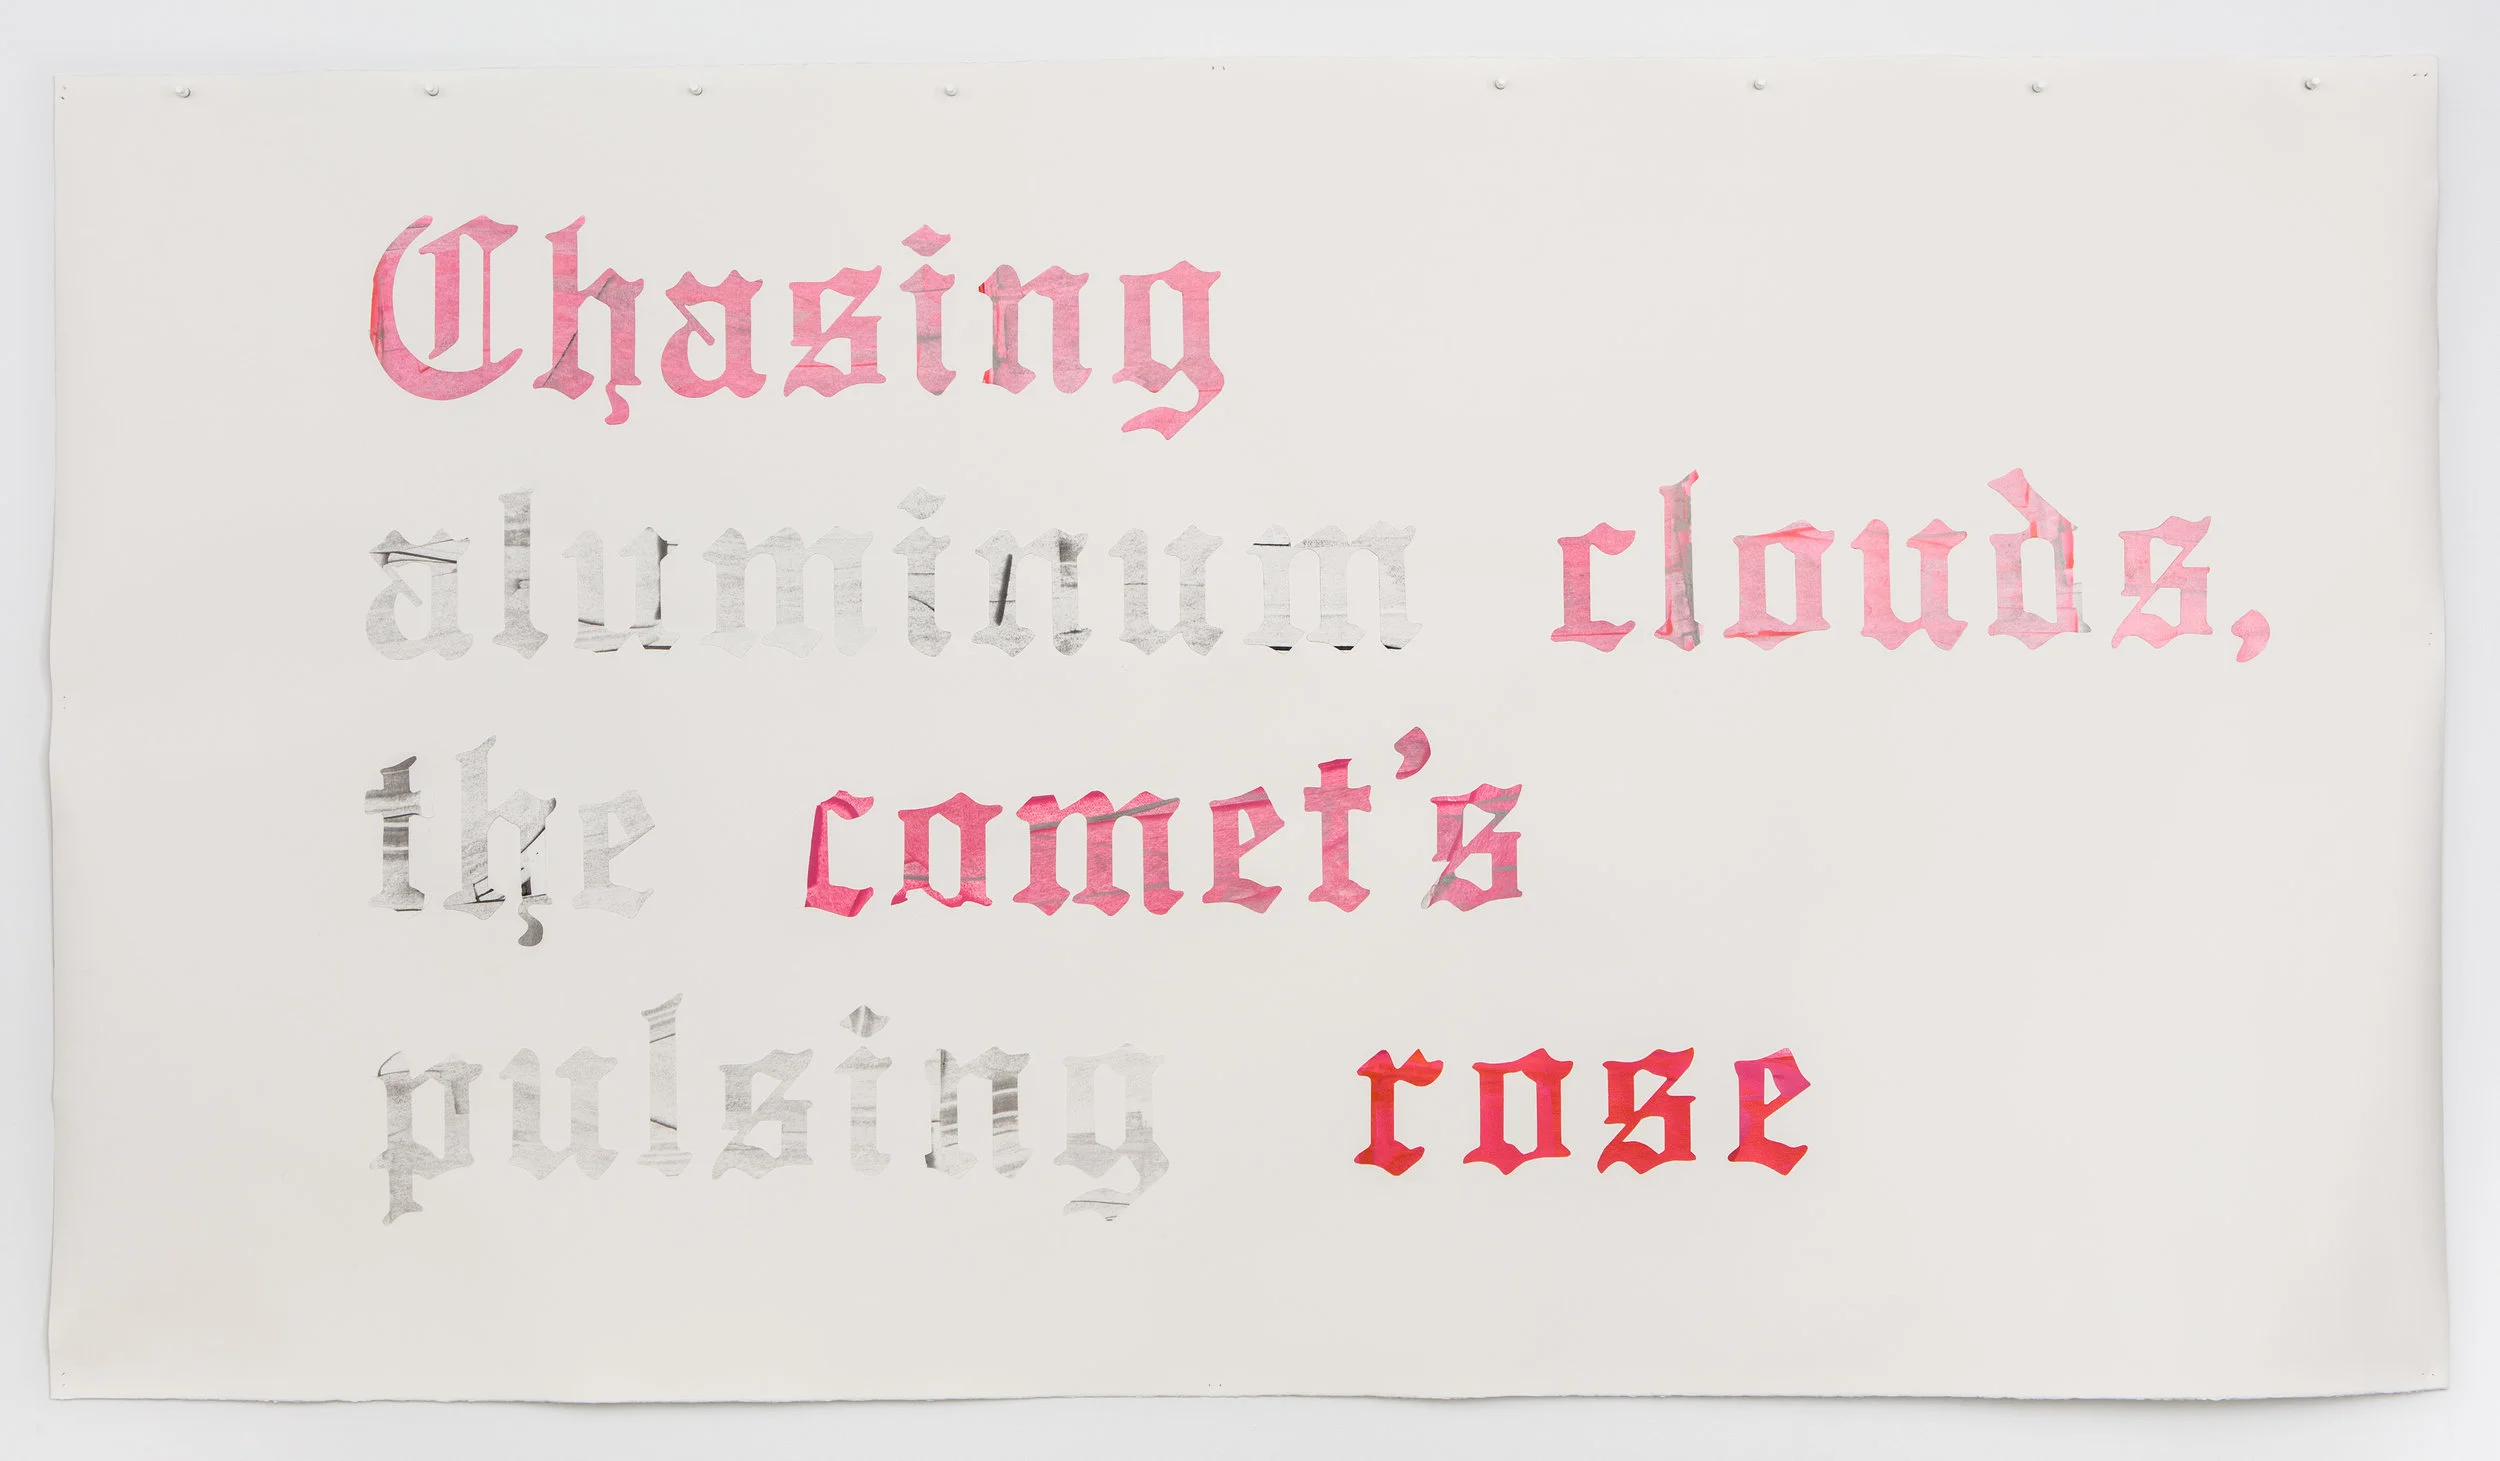 Chasing
aluminum clouds,
the comet's
pulsing rose